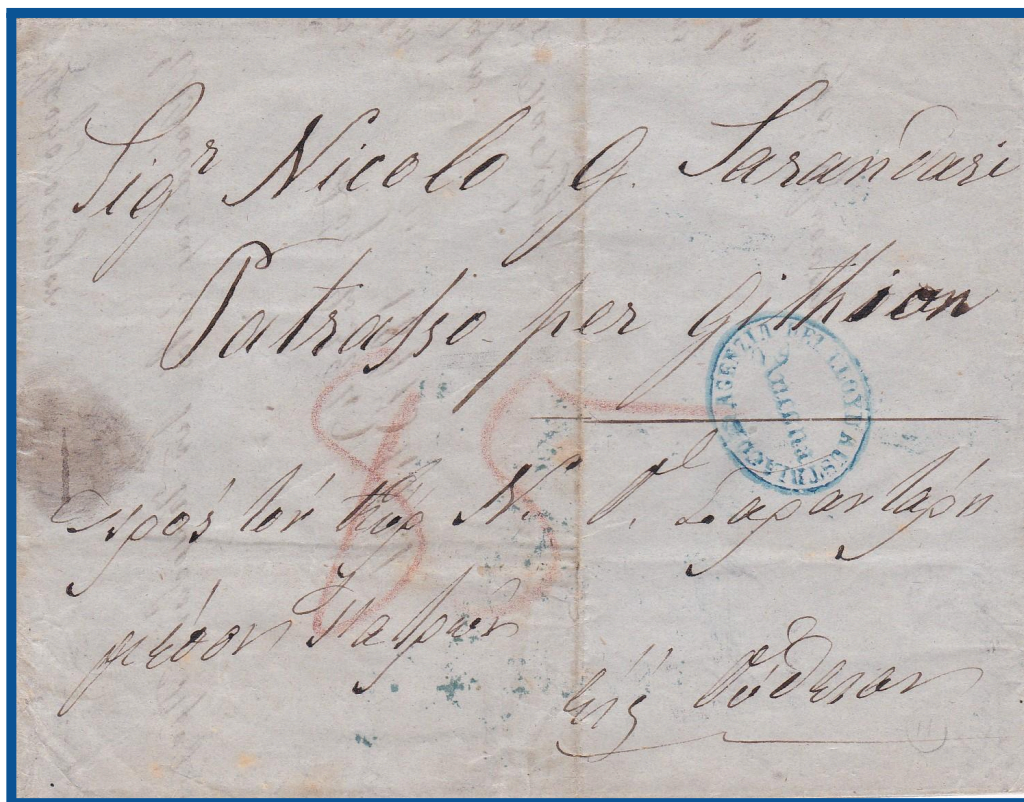 Sigr Nicolo G. Sarandari
Patrasso per githion
AGENZIA DEL LLOYD AUSTRIACO
Ancona
85
πρὸς τὸν Κύρ Ν. Γ. Σαρανταρη
μέσον Πατρων
εἰς Γύθειον